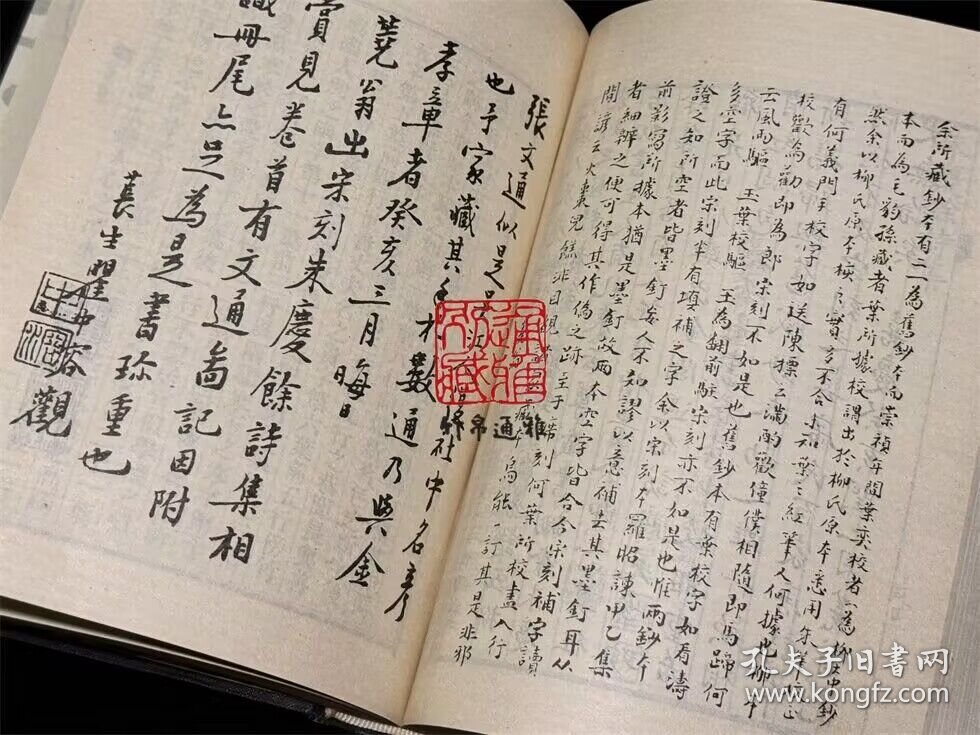 余所藏鈔本有二一為舊鈔本而崇禎年間葉奕校者一為柳㑒中鈔
本而為毛豹孫藏者葉所據校謂出於柳氏原本悉用朱筆校正
然余以柳氏原本核之實多不合
有何義門手校字如送陳標云滿酌歡僮僕相隨即馬蹄何
校歡為勸即為郎宋刻不如是也舊鈔本有葉校字如看濤
云風雨驅 玉葉校驅 玉為翻前駐宋刻亦不如是也惟兩鈔本
多空字而此宋刻半有填補之字余以宋刻本羅昭諫甲乙集
證之知所空者皆墨釘故兩本空字皆合今宋刻補字讀
前影寫所據本猶是墨釘妄人不知謬以意補去其墨釘耳從
者細辨之便可得其作偽之跡至于
間 非目覩 刻何葉所校盡入行
烏能一訂其是非邪
張文通似是
也予家藏其手札數通乃與金
孝章者癸亥三月晦日
社中名彥
蕘翁出宋刻朱慶餘詩集相
賞見卷首有文通圖記因附
識冊尾亦足為是書珍重也
萇生瞿中溶觀
雅通帛
孔夫子旧書网
www.kongfz.com